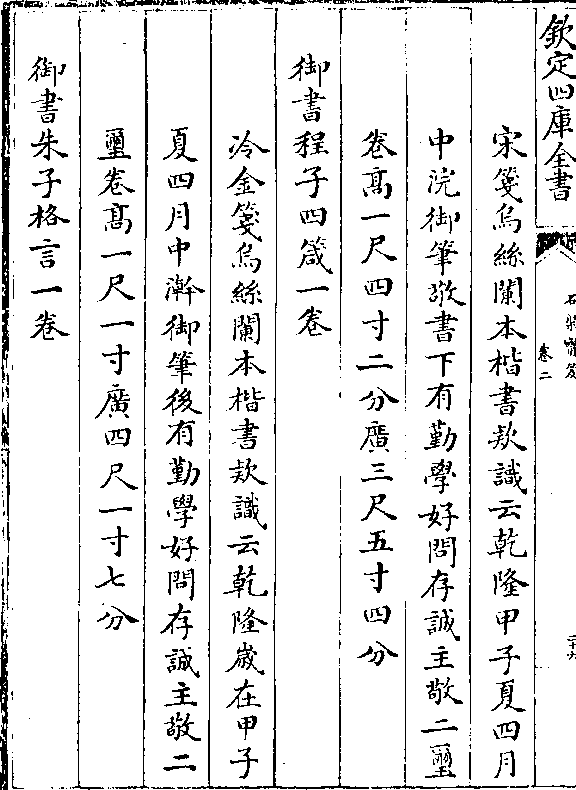 欽定四庫全書
石渠寶笈
卷二
二十六
宋箋烏絲闌本楷書欵識云乾隆甲子夏四月
中浣御筆敬書下有勤學好問存誠主敬二璽
卷髙一尺四寸二分廣三尺五寸四分
御書程子四箴一卷
冷金箋烏絲闌本楷書欵識云乾隆嵗在甲子
夏四月中澣御筆後有勤學好問存誠主敬二
璽卷髙一尺一寸廣四尺一寸七分
御書朱子格言一卷